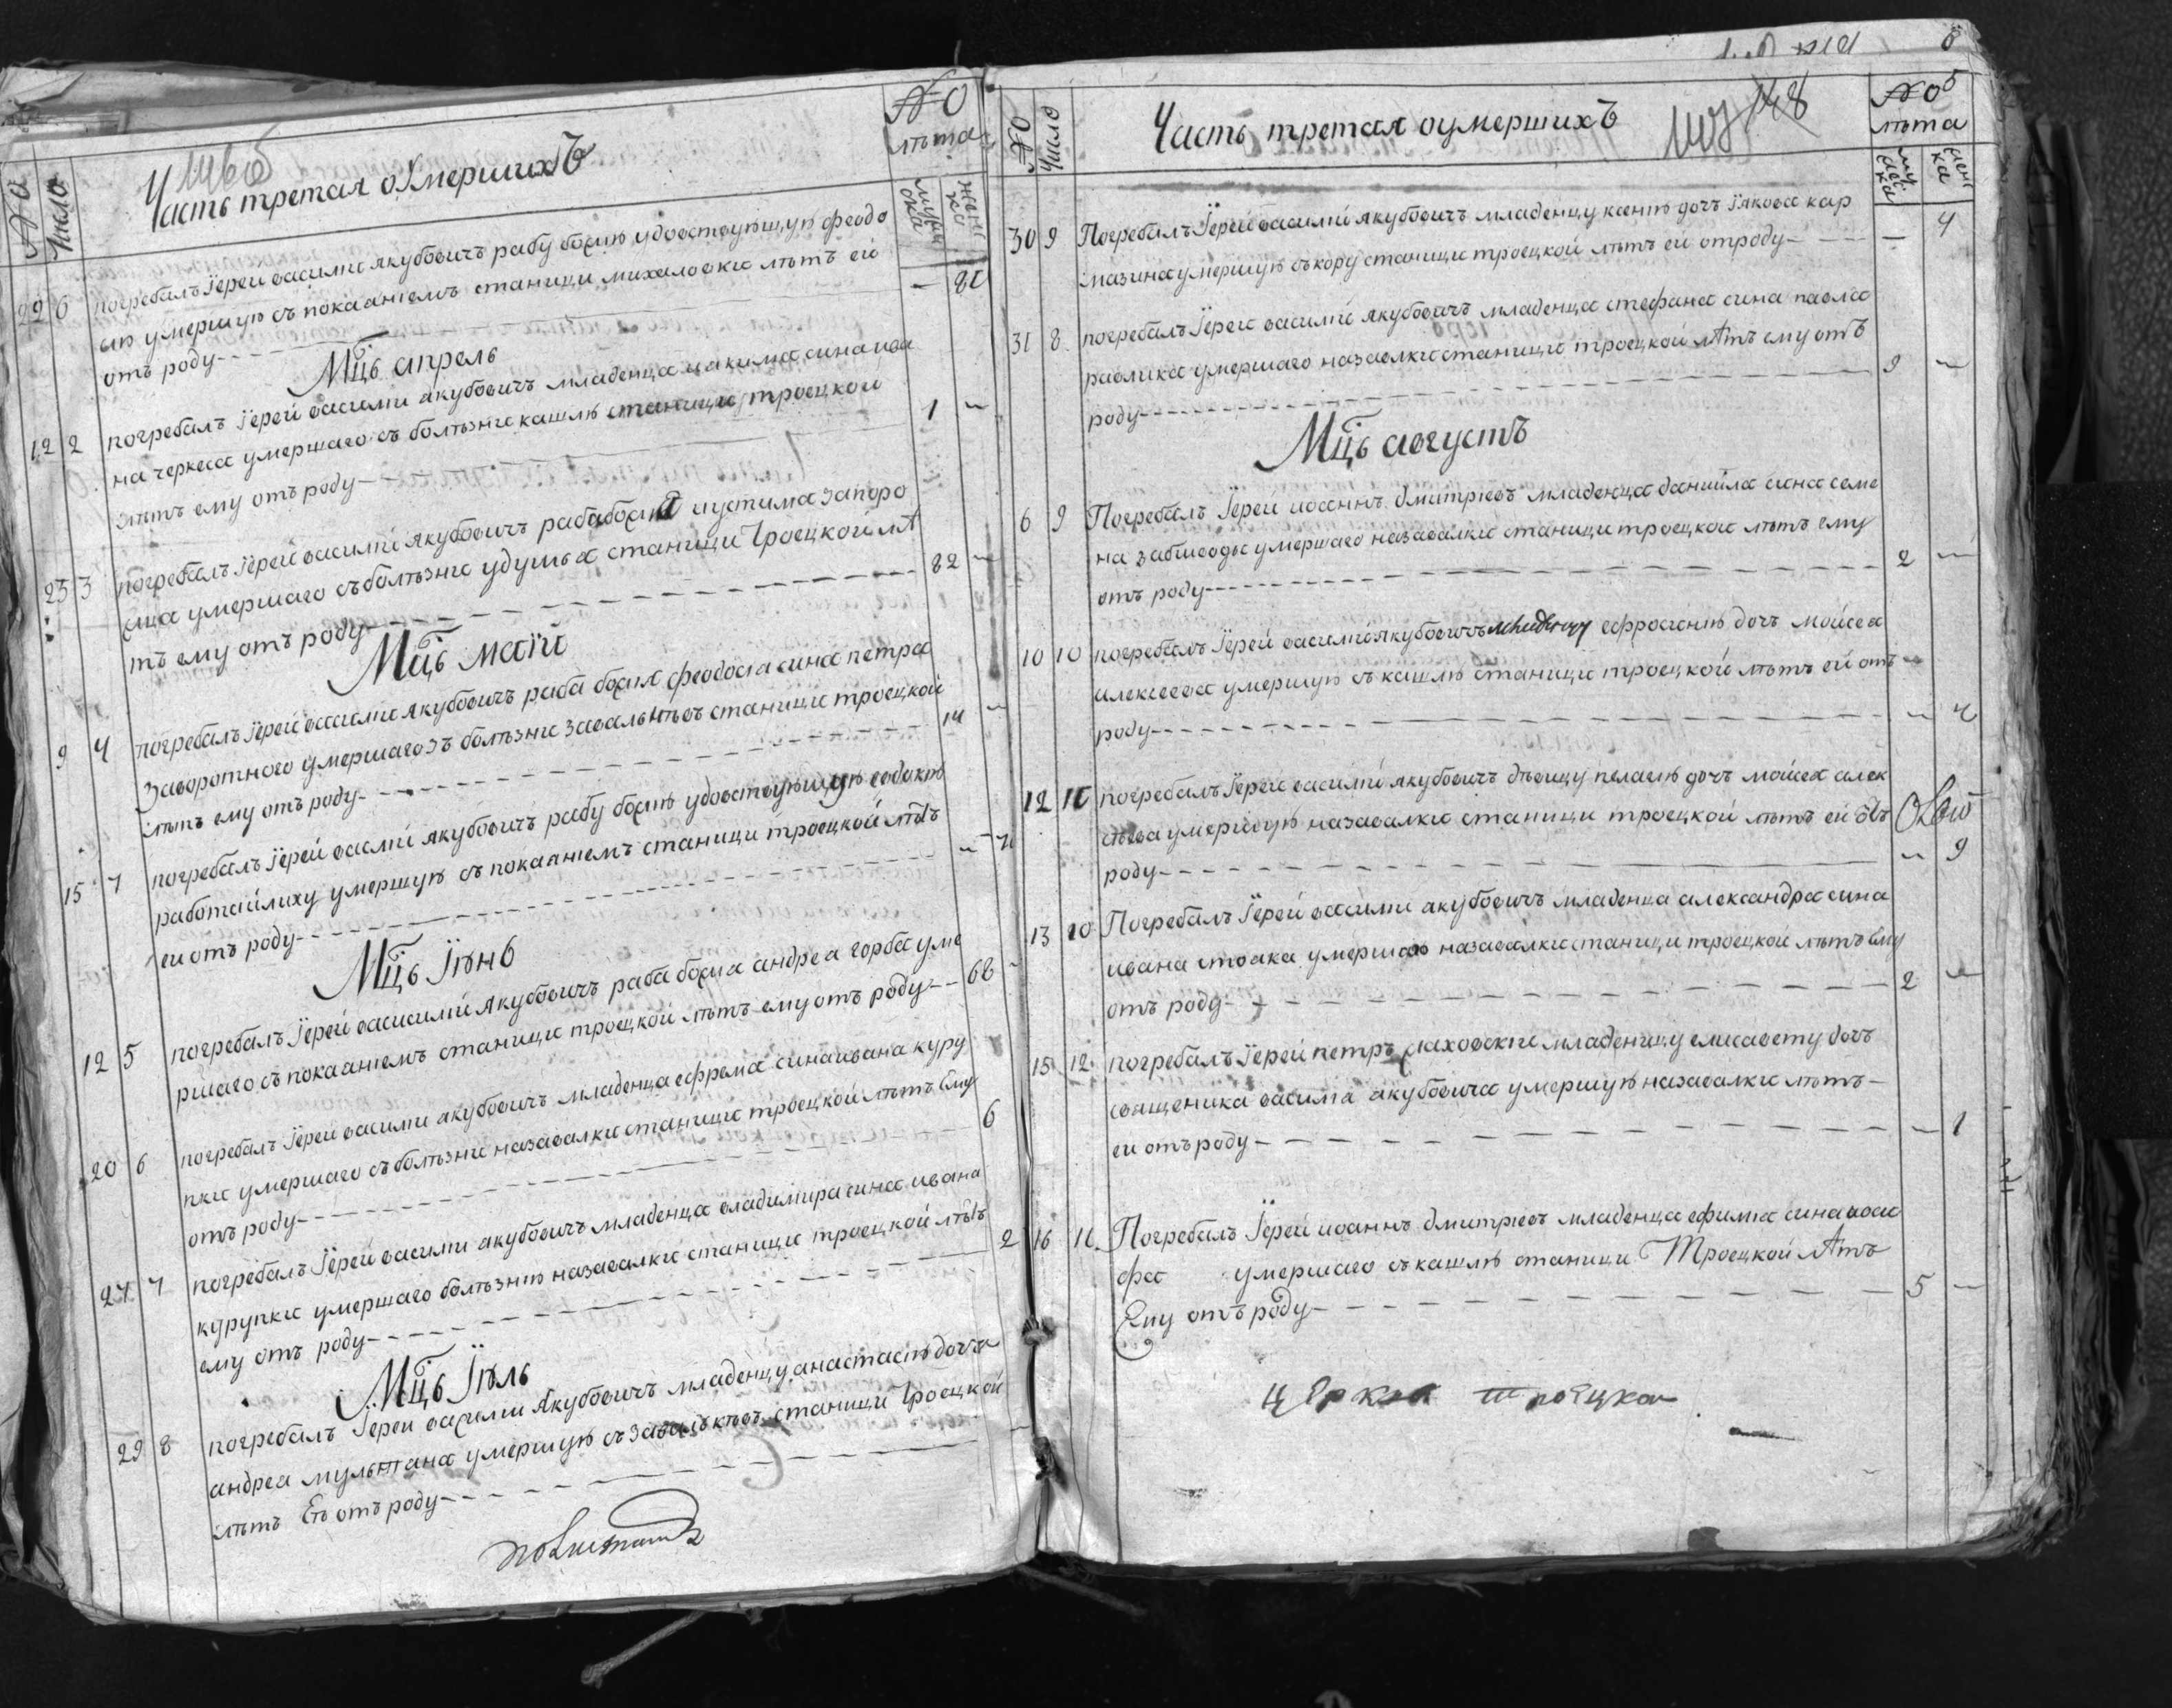 Часть третая оумершихъ
№ 0
лѣта
Число
мужеска
женска
22 6 погребалъ Іерей василий якубовичъ рабу божию удовствующую феодо
ию умершую съ покааніемъ станици михаловки лѣтъ ей
отъ роду - 80
Мцъ апрель
12 2 погребалъ Іерей василий якубовичъ младенца иакима сина ива
на черкеса умершаго съ болѣзни кашлю станици троецкой
лѣтъ ему отъ роду 1 -
23 3 погребалъ Іерей василий якубовичъ раба божия иустима запоро
жца умершаго съ болѣзни удушья станици Троецкой лѣ
тъ ему отъ роду 82 -
Мцъ маій
9 4 погребалъ Іерей василий якубовичъ раба божия феодосіа сина петра
Заворотного умершаго зъ болѣзни завальнѣвъ станици троецкой
лѣтъ ему отъ роду 14 -
15 7 погребалъ Іерей василий якубовичъ рабу божию удовствующую евдокію
работайлиху умершую съ покааніемъ станици троецкой лѣтъ
ей отъ роду
Мцъ Іюнь
12 5 погребалъ Іерей василий якубовичъ раба божиа андреа горба уме
ршаго съ покааніемъ станици троецкой лѣтъ ему отъ роду 68
20 6 погребалъ Іерей василий якубовичъ младенца ефрема сина ивана куру
пки умершаго съ болѣзни назавалки станици троецкой лѣтъ ему
отъ роду 6
27 7 погребалъ Іерей василий якубовичъ младенца владимира сина ивана
курупки умершаго болѣзнію назавалки станици троецкой лѣтъ
ему отъ роду 2
Мцъ Іюль
29 8 погребалъ Іерей василий якубовичъ младенцу анастасію дочъ
андреа мультана умершую съ завалькѣвъ станици Троецкой
лѣтъ Ей отъ роду
Часть третая оумершихъ
№ 0
Число
№ 0
лѣта
мужеска
женска
30 9 Погребалъ Іерей василий якубовичъ младенцу ксенію дочъ Іакова кар
мазина умершую съ кору станици троецкой лѣтъ ей отроду - 4
31 8 погребалъ Іерей василий якубовичъ младенца стефана сина павла
равлика умершаго назавалки станици троецкой лѣтъ ему отъ
роду 9 -
Мцъ августъ
6 9 Погребалъ Іерей иоаннъ дмитріевъ младенца даниила сина семе
на забиводы умершаго назавалки станици троецкой лѣтъ ему
отъ роду 2 -
10 10 погребалъ Іерей василий якубовичъ младенцу ефросинію дочъ мойсеа
алексеева умершую съ кашлю станици троецкой лѣтъ ей отъ
роду - 4
12 11 погребалъ Іерей василий якубовичъ дѣвицу пелагію дочъ мойсеа алек
сѣева умершую назавалки станици троецкой лѣтъ ей отъ
роду - 9
13 10 Погребалъ Іерей василий акубовичъ младенца александра сина
ивана стоака умершаго назавалки станици троецкой лѣтъ ему
отъ роду 2 -
15 12 погребалъ Іерей петръ младеницу елисавету дочъ
священика василіа акубовича умершую назавалки лѣтъ
ей отъ роду - 1
16 11 Погребалъ Іерей иоаннъ дмитріевъ младенца ефиміа сина иоси
фа умершаго съ кашлю станици Троецкой лѣтъ
Ему отъ роду 5 -
церква троецка